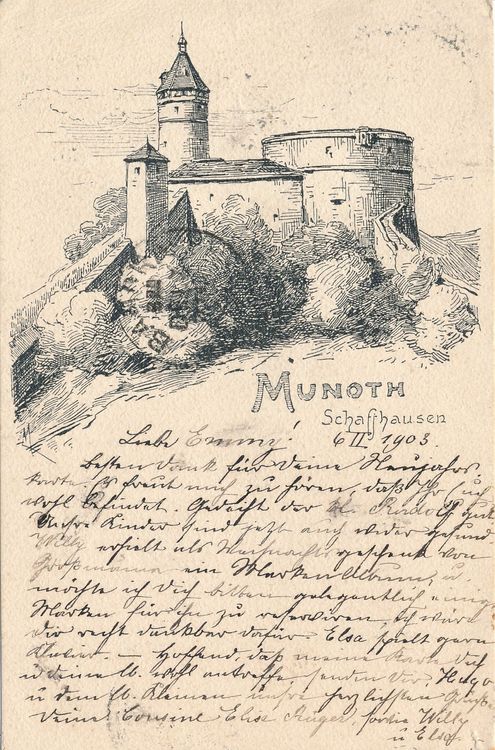 MUNOTH
Schaffhausen
Liebe Emmy! 6 II 1903.
Besten Dank für Deine Neujahrs
karte. Es freut mich zu hören, daß Ihr Euch
wohl befindet. Gedeiht der kl. Rudolf gut
Unsre Kinder sind jetzt auch wider gesund
Willy erhielt als Weihnachtsgeschenk von
Großmama ein Marken Album, u.
möchte ich Dich bitten gelegentlich einige
Marken für ihn zu reserviren, ich wäre
Dir recht dankbar dafür. Elsa spielt gern
Klavier. — Hoffend, daß meine Karte Dich
u deine lb. wohl antreffe, senden Dir, Hugo
u dem lb. Kleinen unsre herzlichsten Grüße
Deine Cousine Elise sowie Willy
u Elsa.
BA